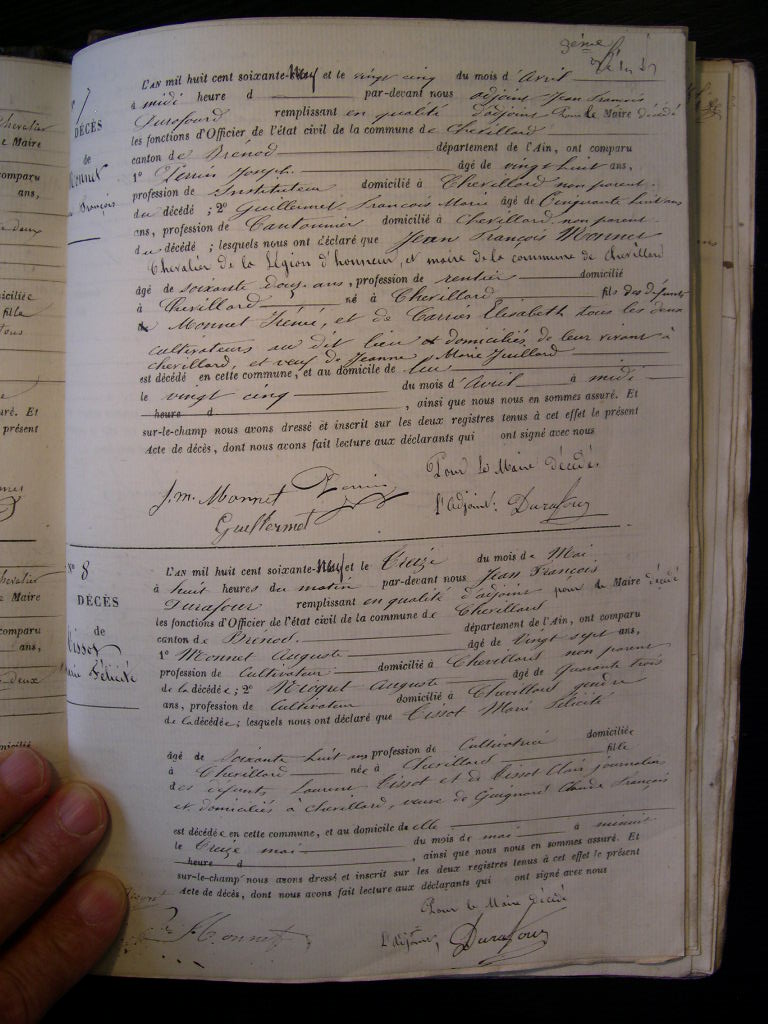 3ème
N° 7
DÉCÈS
de
Monnet
François
L'AN mil huit cent soixante-neuf et le vingt cinq du mois d'Avril
à midi heure d par-devant nous adjoint Jean François
Durafour remplissant en qualité d'adjoint Pour le Maire décédé
les fonctions d'Officier de l'état civil de la commune de Chevillard
canton de Brénod département de l'Ain, ont comparu
1° Perrin Joseph âgé de vingt huit ans,
profession de Instituteur domicilié à Chevillard non parent
du décédé ; 2° Guillermet François Marie âgé de Cinquante huit ans
ans, profession de Cantonnier domicilié à Chevillard non parent
du décédé ; lesquels nous ont déclaré que Jean François Monnet
Chevalier de la Légion d'honneur, et maire de la commune de Chevillard
âgé de soixante douze ans, profession de rentier domicilié
à Chevillard né à Chevillard fils des défunts
de Monnet Iréné, et de Carrier Elisabeth tous les deux
cultivateurs au dit lieu domiciliés de leur vivant à
chevillard, et veuf de Jeanne Marie Juillard
est décédé en cette commune, et au domicile de lui
le vingt cinq du mois d'Avril à midi
heure d , ainsi que nous nous en sommes assuré. Et
sur-le-champ nous avons dressé et inscrit sur les deux registres tenus à cet effet le présent
Acte de décès, dont nous avons fait lecture aux déclarants qui ont signé avec nous
Pour le Maire décédé
J. M. Monnet Perrin
Guillermet
l'adjoint: Durafour
N° 8
DÉCÈS
de
Tissot
Marie Félicité
L'AN mil huit cent soixante-neuf et le Treize du mois de Mai
à huit heures du matin par-devant nous Jean François
Durafour remplissant en qualité d'adjoint pour le Maire décédé
les fonctions d'Officier de l'état civil de la commune de Chevillard
canton de Brénod. département de l'Ain, ont comparu
1° Monnet Auguste âgé de Vingt sept ans,
profession de Cultivateur domicilié à Chevillard non parent
de la décédée ; 2° Auguste âgé de quarante trois
ans, profession de Cultivateur domicilié à Chevillard gendre
de la décédée ; lesquels nous ont déclaré que Tissot Marie Félicité
âgé de soixante huit ans profession de Cultivatrice domiciliée
à Chevillard née à Chevillard fille
des défunts Laurent Tissot et de Tissot Clair journaliers
et domiciliés à Chevillard, veuve de Guignard Claude François
est décédée en cette commune, et au domicile de elle
le Treize mai du mois de mai à minuit
heure d , ainsi que nous nous en sommes assuré. Et
sur-le-champ nous avons dressé et inscrit sur les deux registres tenus à cet effet le présent
Acte de décès, dont nous avons fait lecture aux déclarants qui ont signé avec nous
Pour le Maire décédé
Monnet
L'adjoint, Durafour